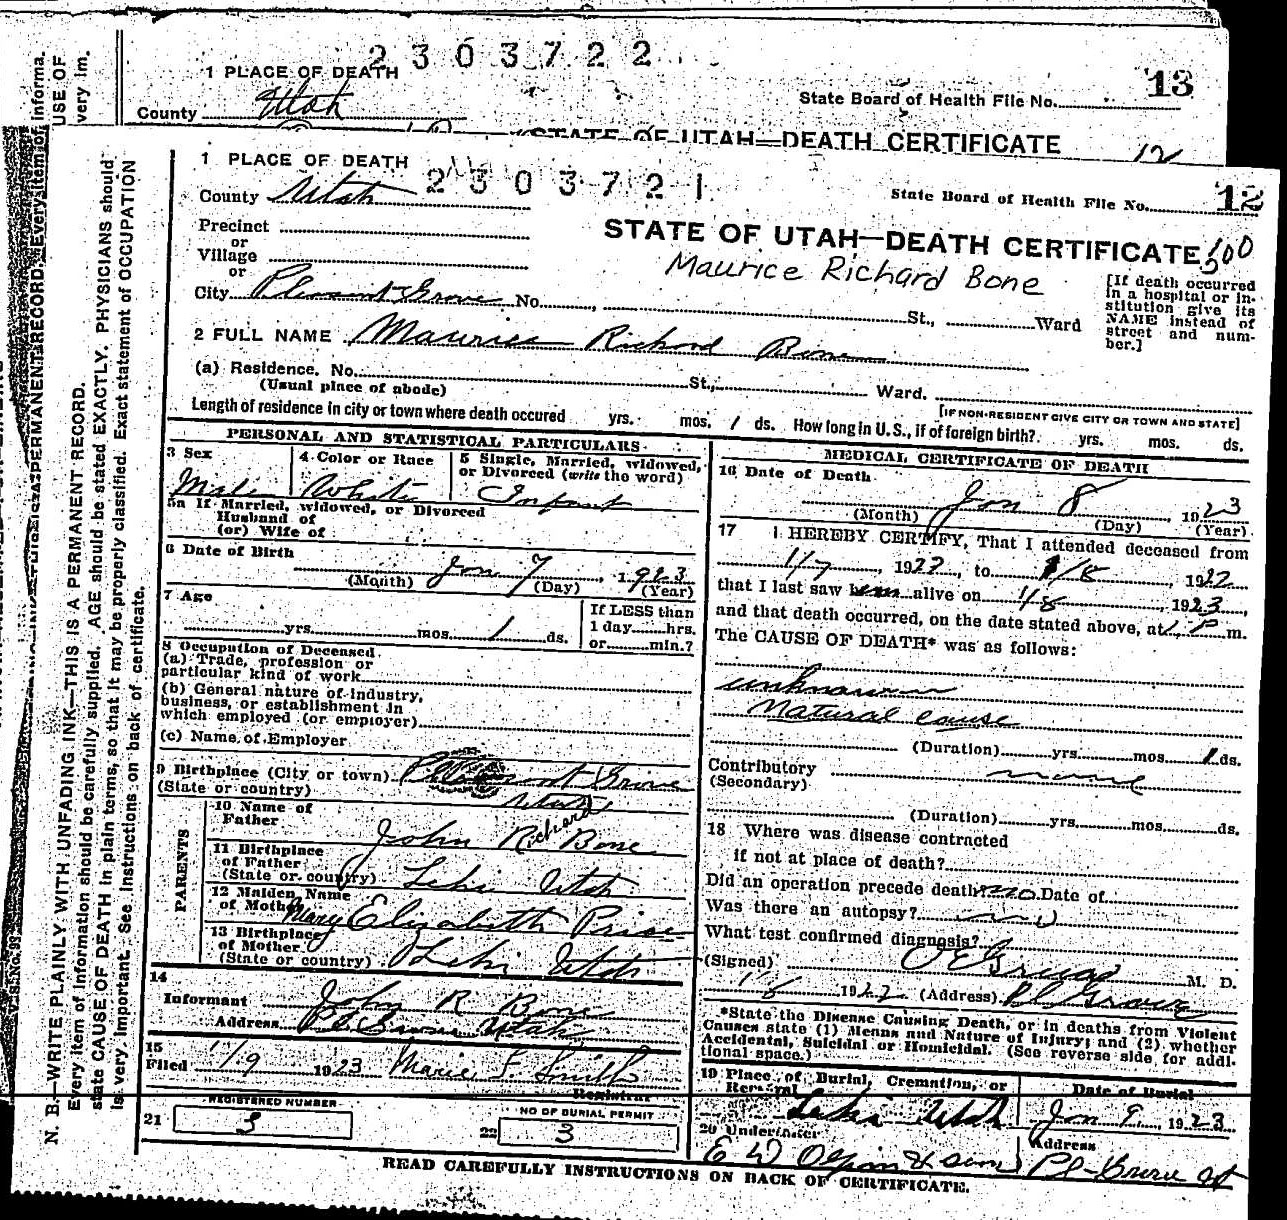 2303722
1 PLACE OF DEATH
13
State Board of Health File No.
County Utah
STATE OF UTAH—DEATH CERTIFICATE
12
1 PLACE OF DEATH
2303721
State Board of Health File No. 12
County Utah
STATE OF UTAH—DEATH CERTIFICATE 500
Precinct
or
Maurice Richard Bone
Village
or
City Pleasant Grove No. , St., Ward
[If death occurred
in a hospital or in-
stitution give its
NAME instead of
street and num-
ber.]
2 FULL NAME Maurice Richard Bone
(a) Residence. No. St., Ward.
(Usual place of abode)
[IF NON-RESIDENT GIVE CITY OR TOWN AND STATE]
Length of residence in city or town where death occured yrs. mos. 1 ds. How long in U.S., if of foreign birth? yrs. mos. ds.
PERSONAL AND STATISTICAL PARTICULARS
3 Sex
Male
4 Color or Race
White
5 Single, Married, widowed,
or Divorced (write the word)
Infant
5a If Married, widowed, or Divorced
Husband of
(or) Wife of
6 Date of Birth
Jan 7, 1923
(Month) (Day) (Year)
7 Age
yrs. mos. 1 ds.
If LESS than
1 day hrs.
or min.?
8 Occupation of Deceased
(a) Trade, profession or
particular kind of work
(b) General nature of industry,
business, or establishment in
which employed (or employer)
(c) Name of Employer
9 Birthplace (City or town) Pleasant Grove
(State or country) Utah
PARENTS
10 Name of
Father John Richard Bone
11 Birthplace
of Father
(State or country) Lehi Utah
12 Maiden Name
of Mother Mary Elizabeth Price
13 Birthplace
of Mother
(State or country) Lehi Utah
14
Informant John R Bone
Address Pl Grove Utah
15
Filed 1/9 1923 Marie F. Smith
Registrar
REGISTERED NUMBER
21 3
NO OF BURIAL PERMIT
22 3
MEDICAL CERTIFICATE OF DEATH
16 Date of Death
Jan 8, 1923
(Month) (Day) (Year)
17 I HEREBY CERTIFY, That I attended deceased from
1/7, 1922, to 1/8, 1922
that I last saw him alive on 1/8, 1923,
and that death occurred, on the date stated above, at 1 P m.
The CAUSE OF DEATH* was as follows:
unknown
Natural cause
(Duration) yrs. mos. 1 ds.
Contributory none
(Secondary)
(Duration) yrs. mos. ds.
18 Where was disease contracted
if not at place of death?
Did an operation precede death no Date of
Was there an autopsy? no
What test confirmed diagnosis?
(Signed) O E Grua M. D.
1/8 1922 (Address) Pl Grove
*State the Disease Causing Death, or in deaths from Violent
Causes state (1) Menns and Nature of Injury; and (2) whether
Accidental, Suicidal or Homicidal. (See reverse side for addi-
tional space.)
19 Place of Burial, Cremation, or
Removal
Lehi Utah
Date of Burial
Jan 9, 1923
20 Undertaker
E W Olpin & Sons
Address
Pl Grove Ut
READ CAREFULLY INSTRUCTIONS ON BACK OF CERTIFICATE.
N. B.—WRITE PLAINLY WITH UNFADING INK—THIS IS A PERMANENT RECORD.
Every item of information should be carefully supplied. AGE should be stated EXACTLY. PHYSICIANS should
state CAUSE OF DEATH in plain terms, so that it may be properly classified. Exact statement of OCCUPATION
is very important. See instructions on back of certificate.